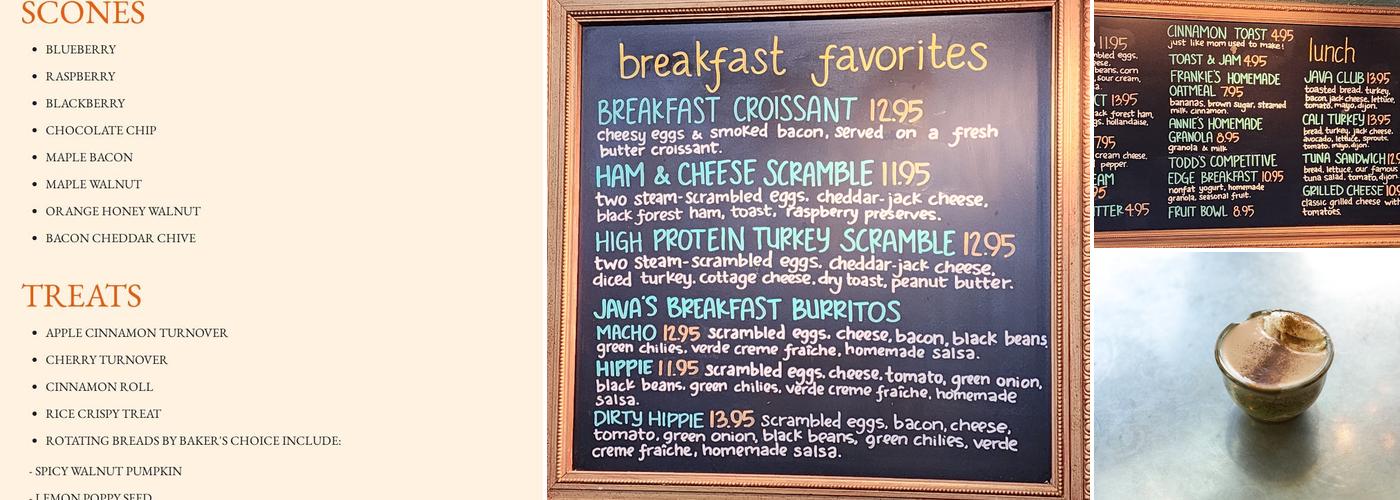 SCONES
BLUEBERRY
RASPBERRY
BLACKBERRY
CHOCOLATE CHIP
MAPLE BACON
MAPLE WALNUT
ORANGE HONEY WALNUT
BACON CHEDDAR CHIVE
TREATS
APPLE CINNAMON TURNOVER
CHERRY TURNOVER
CINNAMON ROLL
RICE CRISPY TREAT
ROTATING BREADS BY BAKER'S CHOICE INCLUDE:
- SPICY WALNUT PUMPKIN
- LEMON POPPY SEED
breakfast favorites
BREAKFAST CROISSANT 12.95
cheesy eggs & smoked bacon, served on a fresh
butter croissant.
HAM & CHEESE SCRAMBLE 11.95
two steam-scrambled eggs. cheddar-jack cheese,
black forest ham, toast, raspberry preserves.
HIGH PROTEIN TURKEY SCRAMBLE 12.95
two steam-scrambled eggs. cheddar-jack cheese.
diced turkey. cottage cheese. dry toast, peanut butter.
JAVA'S BREAKFAST BURRITOS
MACHO 12.95 scrambled eggs. cheese, bacon, black beans
green chilies. verde creme fraîche, homemade salsa.
HIPPIE 11.95 scrambled eggs. cheese. tomato, green onion,
black beans. green chilies, verde creme fraîche, homemade
salsa.
DIRTY HIPPIE 13.95 scrambled eggs, bacon, cheese,
tomato, green onion, black beans, green chilies, verde
creme fraîche, homemade salsa.
11.95
eggs,
beans, corn
sour cream,
13.95
ham,
hollandaise,
7.95
cream cheese,
pepper.
4.95
CINNAMON TOAST 4.95
just like mom used to make!
TOAST & JAM 4.95
FRANKIE'S HOMEMADE
OATMEAL 7.95
bananas, brown sugar, steamed
milk, cinnamon.
ANNIE'S HOMEMADE
GRANOLA 8.95
granola & milk
TODD'S COMPETITIVE
EDGE BREAKFAST 10.95
nonfat yogurt, homemade
granola, seasonal fruit.
FRUIT BOWL 8.95
lunch
JAVA CLUB 13.95
toasted bread, turkey,
bacon, jack cheese, lettuce,
tomato, mayo, dijon.
CALI TURKEY 13.95
bread, turkey, jack cheese,
avocado, lettuce, sprouts,
tomato, mayo, dijon.
TUNA SANDWICH
bread, lettuce, our famous
tuna salad, tomato, dijon
GRILLED CHEESE
classic grilled cheese with
tomatoes.